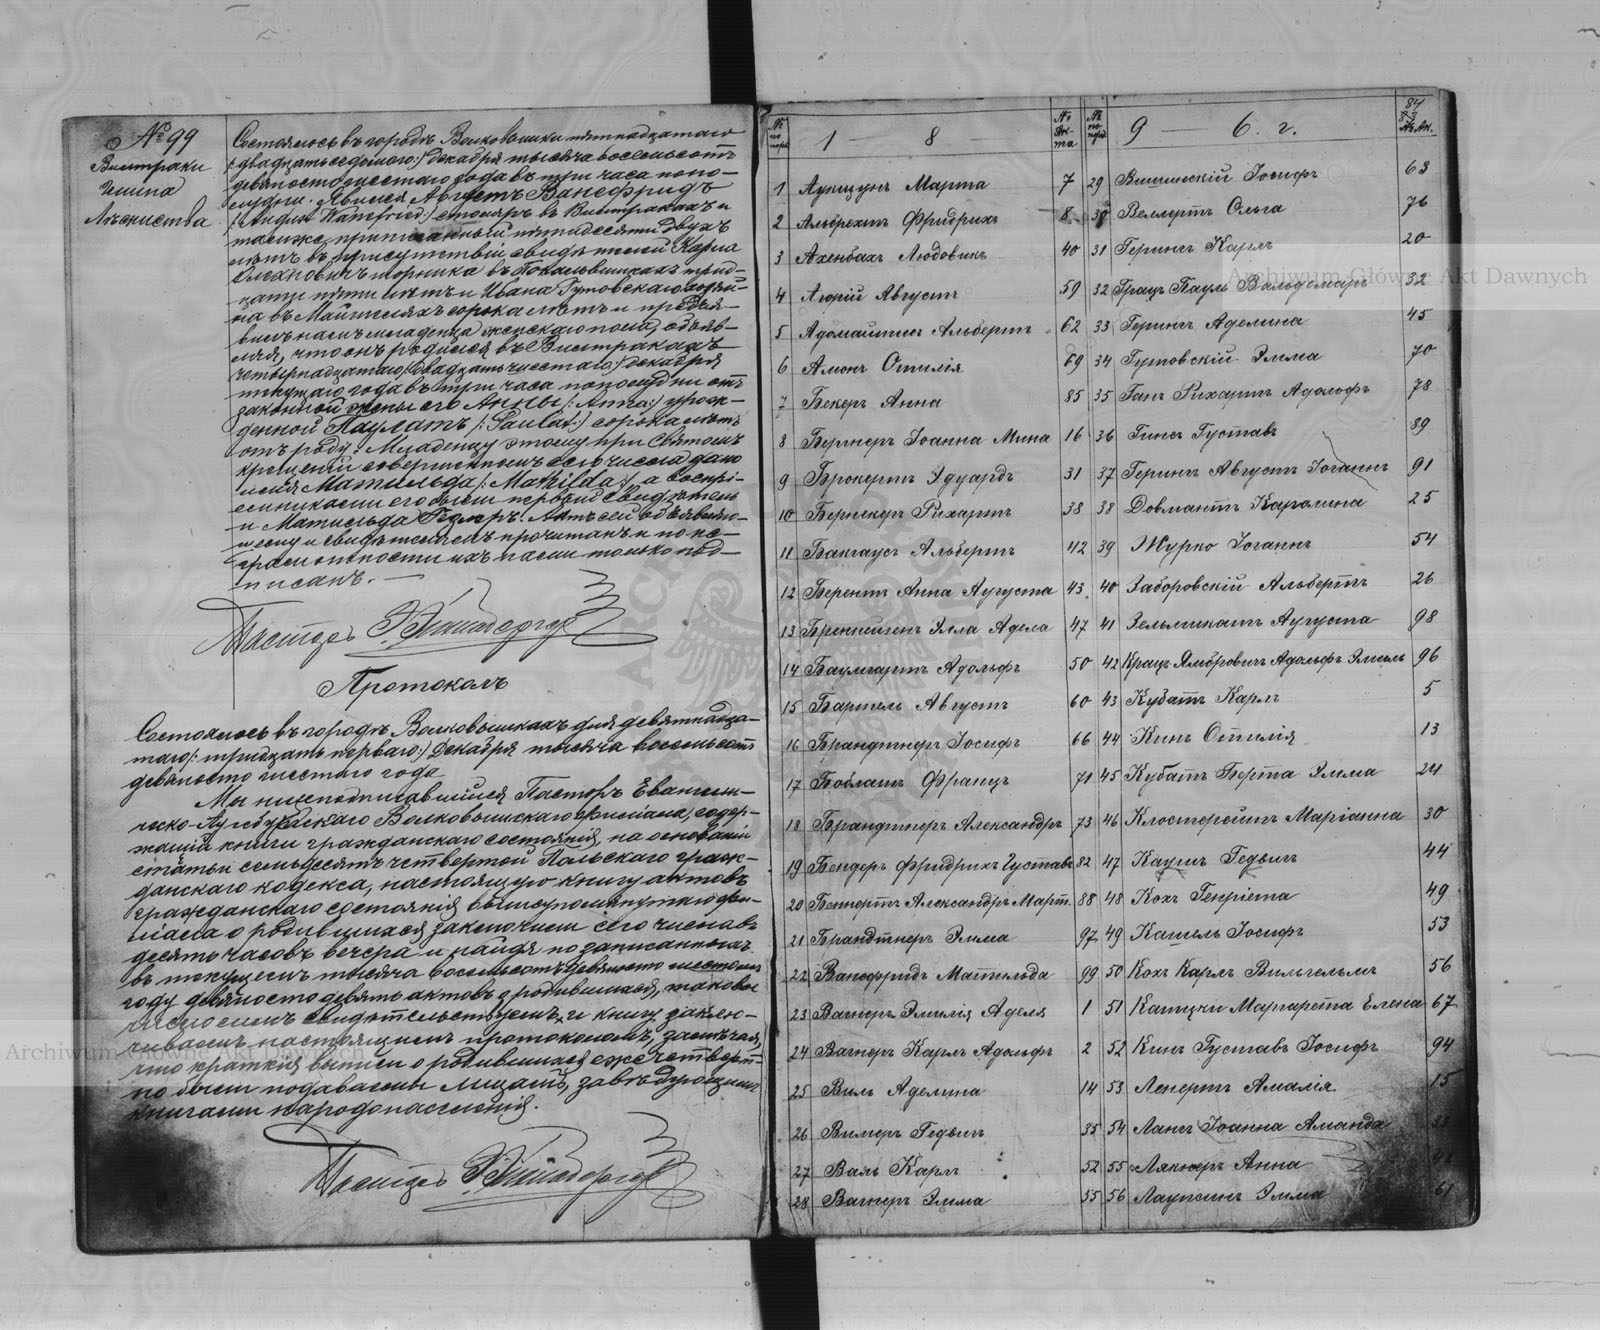 № 99
Вистраки
Гмина
Состоялось въ городѣ Волковышки пятнадцатаго
/:двадцать седьмого:/ декабря тысяча восемьсотъ
девяносто шестаго года въ три часа попо-
лудни. Явился Августъ Ванефридъ
/:August Wanefried:/ столяръ въ Вистракахъ и
также приписанный пятидесяти двухъ
лѣтъ въ присутствіи свидѣтелей Карла
въ трид-
цати пяти лѣтъ и Ивана Гутовскаго
на въ сорока лѣтъ и предъя-
вилъ намъ младенца женскаго пола, объяв-
ляя, что онъ родился въ Вистракахъ
четырнадцатаго /:двадцать шестаго:/ декабря
текущаго года въ три часа пополудни отъ
законной жены его Анны /:Anna:/ урож-
денной Паулатъ /:Paulat:/ сорока лѣтъ
отъ роду. Младенцу этому при Святомъ
крещеніи совершенномъ сего числа дано
имя Матильда /:Matilda:/, а воспрі-
емниками его были первый свидѣтель
и Матильда Актъ сей объявляю-
щему и свидѣтелямъ прочитанъ и по не-
грамотности ихъ нами только под-
писанъ. —
Пасторъ
Протоколъ
Состоялось въ городѣ Волковышкахъ дня девятнадца-
таго /:тридцать перваго:/ Декабря тысяча восемьсотъ
девяносто шестаго года
Мы нижеподписавшійся Пасторъ Евангели-
ческо-Аугсбургскаго Волковышскаго филіала, содер-
жащій книги гражданскаго состоянія, на основаніи
статьи семьдесятъ четвертой Польскаго граж-
данскаго кодекса, настоящую книгу актовъ
гражданскаго состоянія вышеупомянутаго фи-
ліала о родившихся заключили сего числа въ
десять часовъ вечера и найдя по записаннымъ
въ текущемъ тысяча восемьсотъ девяносто шестомъ
году девяносто девять актовъ о родившихся, таковое
число симъ свидѣтельствуемъ, и книгу заклю-
чиваемъ настоящимъ протоколомъ, замѣчая,
что краткія выписи о родившихся ежечетверт-
но были подаваемы лицамъ, завѣдующимъ
книгами народонаселенія.
Пасторъ
№ по поря. 1 — 8 №№ Ак-та
1 Марта 7
2 Альбрехтъ Фридрихъ 8
3 Ахенбахъ Людовикъ 40
4 Августъ 59
5 Адомайтисъ Альбертъ 62
6 Амонъ Отилія 69
7 Бекеръ Анна 85
8 Бернеръ Іоанна Мина 16
9 Брокертъ Эдуардъ 31
10 Бернекеръ Рихартъ 38
11 Бакгаусъ Альбертъ 42
12 Берентъ Анна Аугуста 43
13 Элла Адела 47
14 Баумгартъ Адольфъ 50
15 Бартель Августъ 60
16 Брандтнеръ Іосифъ 66
17 Боблатъ Францъ 71
18 Брандтнеръ Александръ 73
19 Бендеръ Фридрихъ Густавъ 82
20 Беннертъ Александръ Март. 88
21 Брандтнеръ Эмма 97
22 Ванефридъ Матильда 99
23 Вагнеръ Эмилія Аделя 1
24 Вагнеръ Карлъ Адольфъ 2
25 Виль Аделина 14
26 Вимеръ Гедвигъ 35
27 Валь Карлъ 52
28 Вагнеръ Эмма 55
№ по поря. 9 — 6. г. 84
29 Вишнскій Іосифъ 63
30 Веллертъ Ольга 76
31 Герингъ Карлъ 20
32 Грацъ Пауль Вальдемаръ 32
33 Герингъ Аделина 45
34 Гутовскій Эмма 70
35 Ганъ Рихартъ Адольфъ 78
36 Гинсъ Густавъ 89
37 Герингъ Августъ Іоганнъ 91
38 Довматтъ Каролина 25
39 Журко Іоганнъ 54
40 Заборовскій Альбертъ 26
41 Аугуста 98
42 Крацъ Адольфъ Эмиль 96
43 Кубатъ Карлъ 5
44 Кинъ Отилія 13
45 Кубатъ Берта Эмма 24
46 Маріанна 30
47 Каушъ Гедвигъ 44
48 Кохъ Генріета 49
49 Кашель Іосифъ 53
50 Кохъ Карлъ Вильгельмъ 56
51 Маргарета Елена 67
52 Кинъ Густавъ Іосифъ 94
53 Ленертъ Амалія 15
54 Лангъ Іоанна Аманда 33
55 Анна
56 Эмма 61
Archiwum Główne Akt Dawnych
Archiwum Główne Akt Dawnych